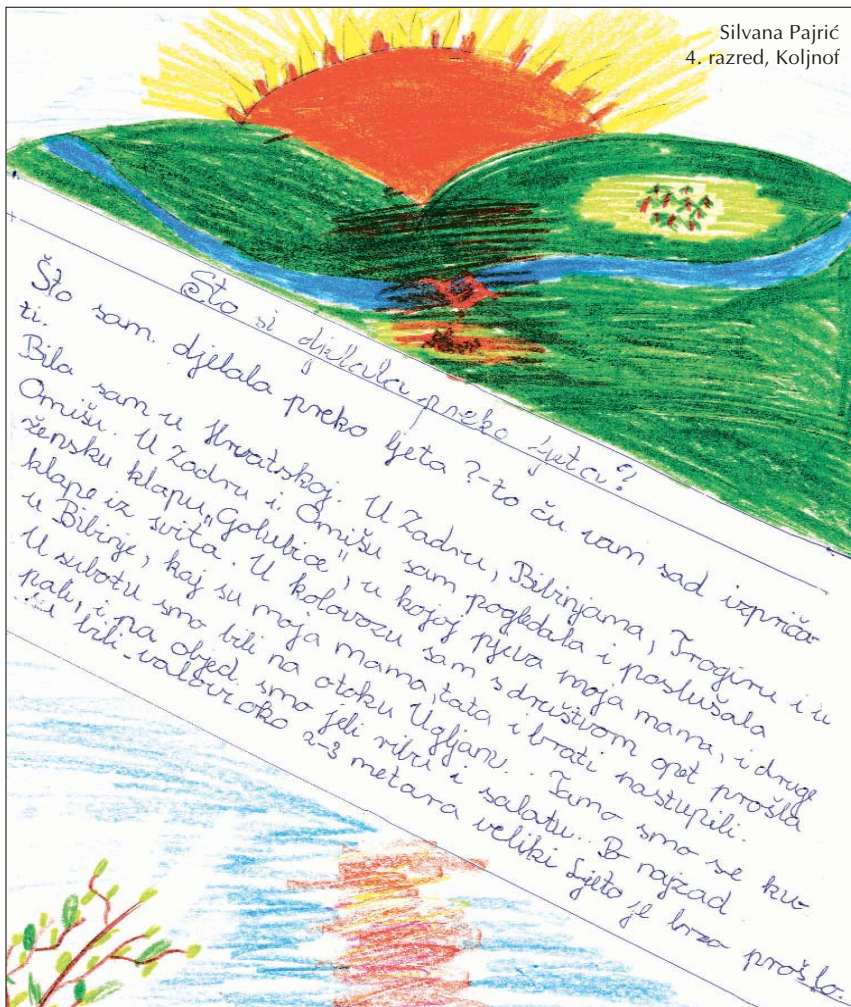 Silvana Pajrić
4. razred, Koljnof
Što si djelala preko ljeta?
Što sam djelala preko ljeta?-to ću vam sad izpriča-
ti.
Bila sam u Hrvatskoj. U Zadru, Bibinjama, Trogiru i u
Omišu. U Zadru i Omišu sam pogledala i poslušala
žensku klapu „Golubice”, u kojoj pjeva moja mama, i druge
klape iz svita. U kolovozu sam s društvom opet prošla
u Bibinje, kaj su moja mama, tata i brati nastupili.
U subotu smo bili na otoku Ugljanu. Tamo smo se ku-
pali, i na objed smo jeli ribu i salatu. najzad
su bili valovi oko 2-3 metara veliki Ljeto je brzo prošlo.